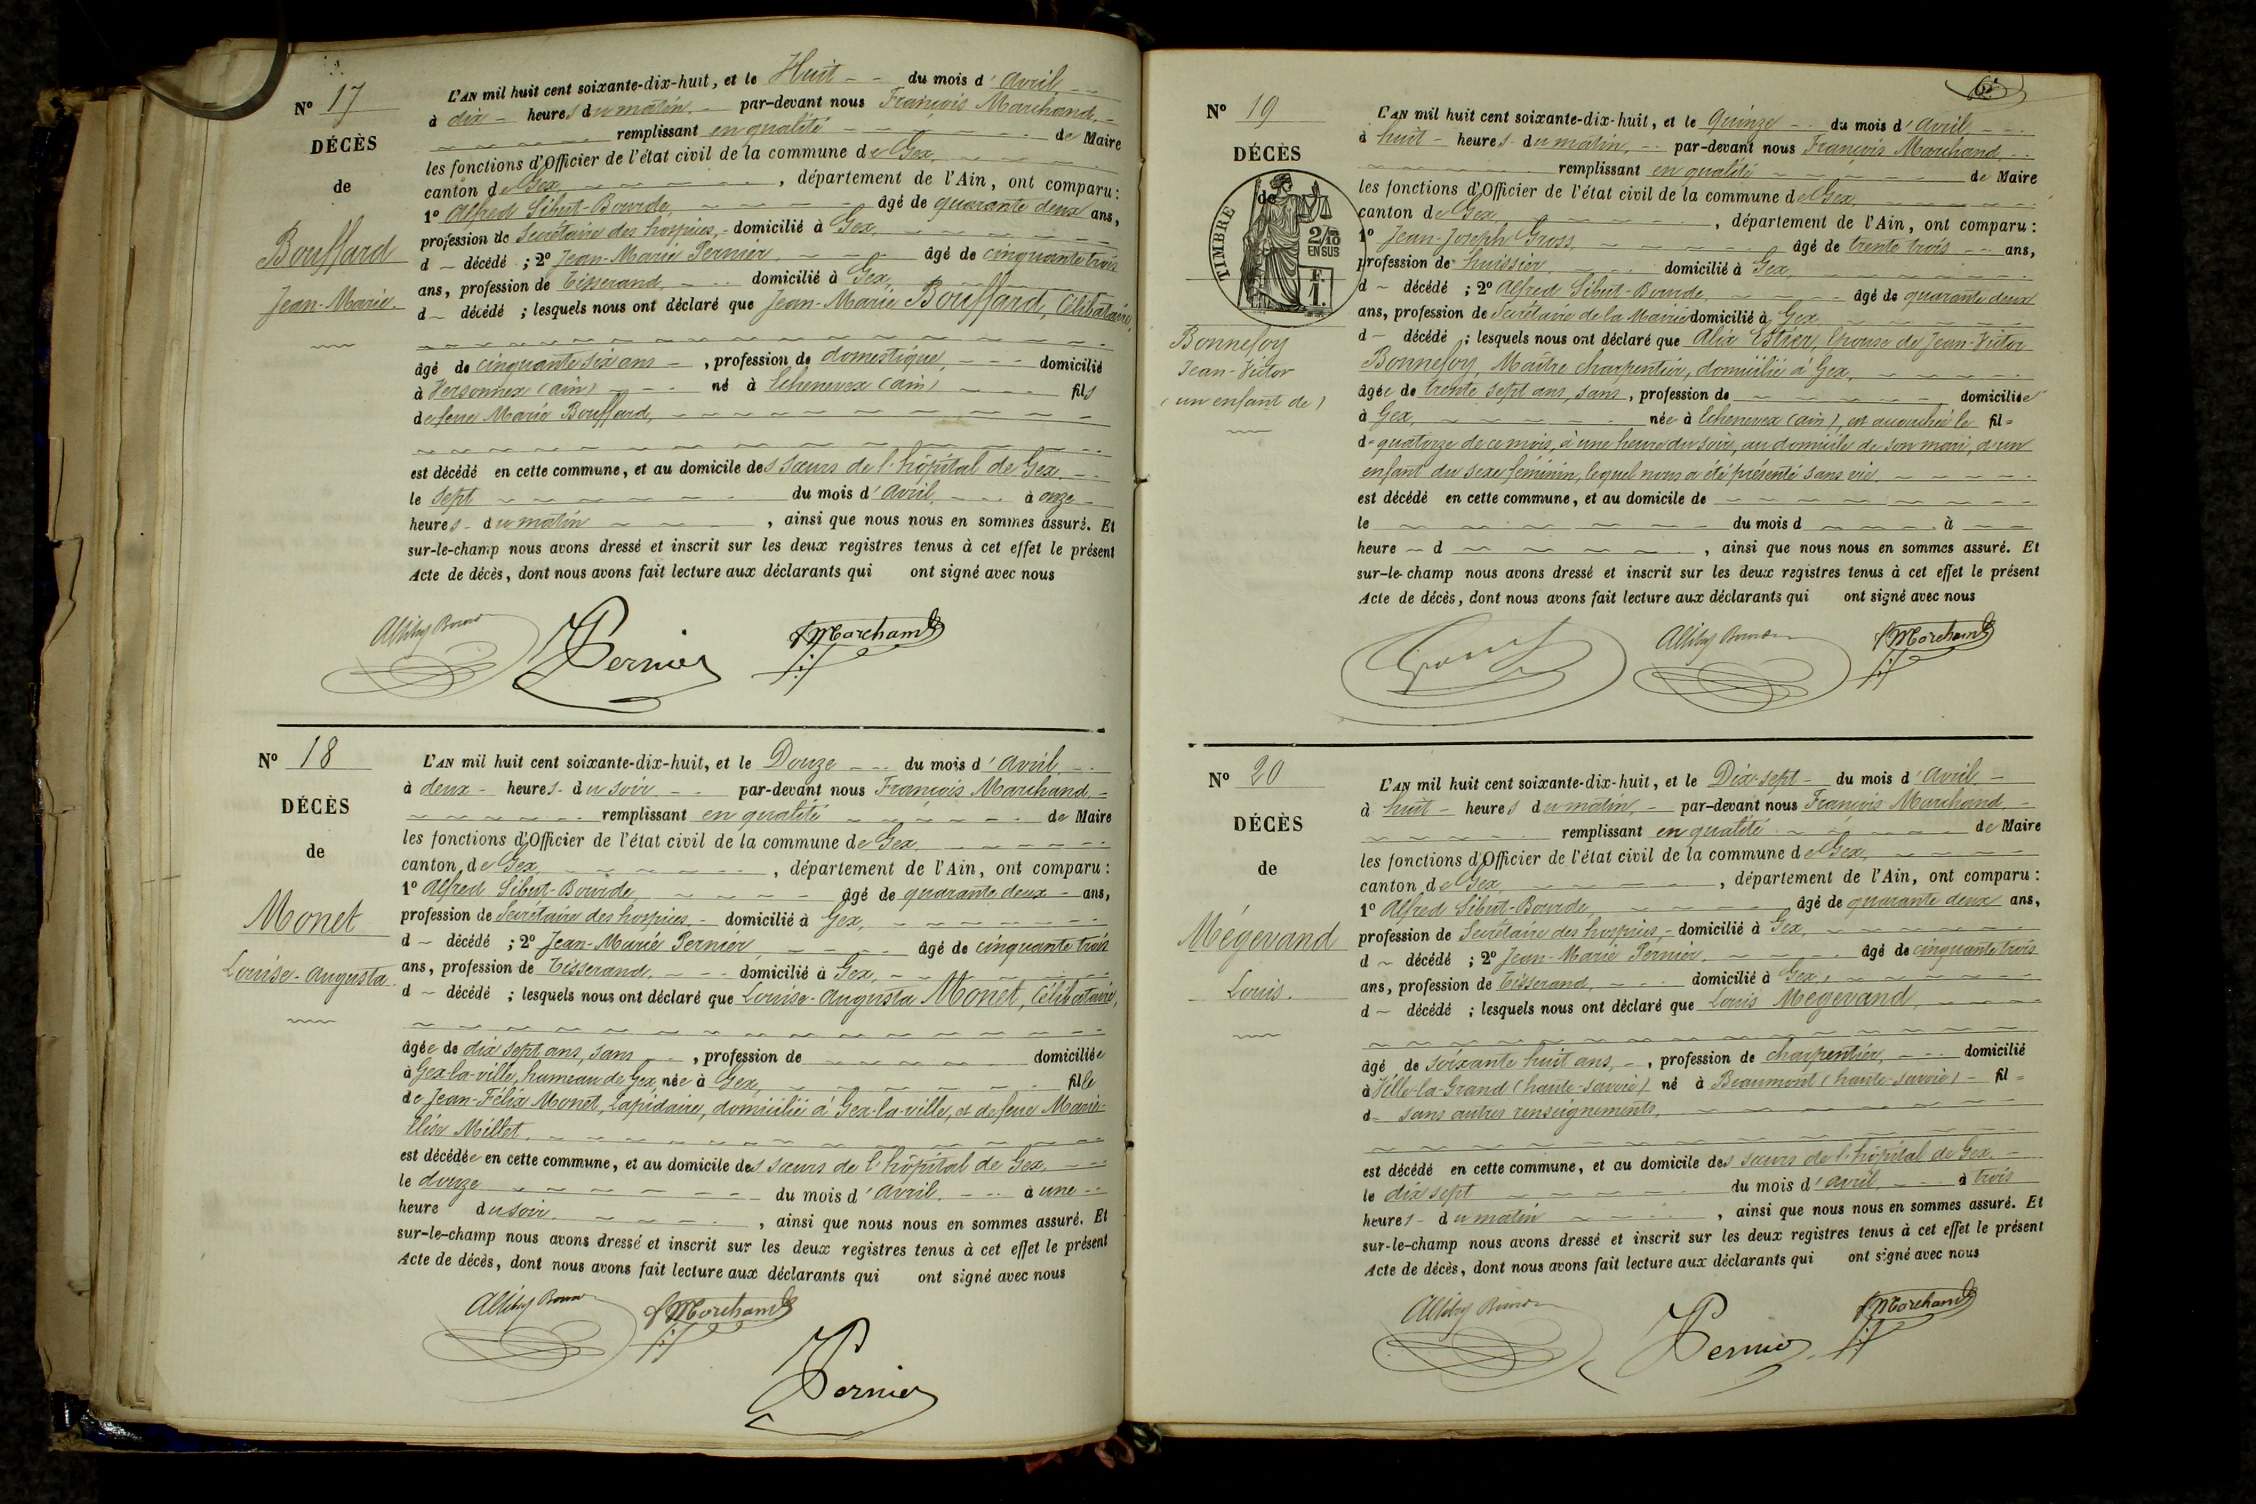 N° 17
DÉCÈS
de
Bouffard
Jean-Marie
L'AN mil huit cent soixante-dix-huit, et le Huit du mois d'avril
à dix heures du matin par-devant nous François Marchand
remplissant en qualité de Maire
les fonctions d'Officier de l'état civil de la commune de Gex,
canton de Gex, département de l'Ain, ont comparu :
1° Alfred Sibut-Bourde, âgé de quarante deux ans,
profession de Secrétaire des hospices, domicilié à Gex,
d décédé ; 2° Jean-Marie Pernier, âgé de cinquante trois
ans, profession de Tisserand, domicilié à Gex,
d décédé ; lesquels nous ont déclaré que Jean-Marie Bouffard, Célibataire,
âgé de cinquante six ans, profession de domestique, domicilié
à Versonnex (ain) né à Echenevex (ain) fils
de feue Marie Bouffard,
est décédé en cette commune, et au domicile des sœurs de l'hôpital de Gex
le sept du mois d'avril à onze
heures du matin, ainsi que nous nous en sommes assuré. Et
sur-le-champ nous avons dressé et inscrit sur les deux registres tenus à cet effet le présent
Acte de décès, dont nous avons fait lecture aux déclarants qui ont signé avec nous
Pernier
Marchand
N° 18
DÉCÈS
de
Monet
Louise-Augusta
L'AN mil huit cent soixante-dix-huit, et le Douze du mois d'avril
à deux heures du soir par-devant nous François Marchand
remplissant en qualité de Maire
les fonctions d'Officier de l'état civil de la commune de Gex,
canton de Gex, département de l'Ain, ont comparu :
1° Alfred Sibut-Bourde, âgé de quarante deux ans,
profession de Secrétaire des hospices, domicilié à Gex,
d décédé ; 2° Jean-Marie Pernier, âgé de cinquante trois
ans, profession de Tisserand, domicilié à Gex,
d décédé ; lesquels nous ont déclaré que Louise-augusta Monet, Célibataire,
âgée de dix sept ans, sans, profession de domiciliée
à Gex-la-ville, hameau de Gex, née à Gex, fille
de Jean-Félix Monet, Lapidaire, domicilié à Gex-la-ville, et de feue Marie-
Elise Millet,
est décédée en cette commune, et au domicile des sœurs de l'hôpital de Gex
le douze du mois d'avril à une
heure du soir, ainsi que nous nous en sommes assuré. Et
sur-le-champ nous avons dressé et inscrit sur les deux registres tenus à cet effet le présent
Acte de décès, dont nous avons fait lecture aux déclarants qui ont signé avec nous
Marchand
Pernier
N° 19
DÉCÈS
de
TIMBRE
2/10
EN SUS
F.
1.
Bonnefoy
Jean-Victor
(un enfant de)
L'AN mil huit cent soixante-dix-huit, et le Quinze du mois d'avril
à huit heures du matin, par-devant nous François Marchand
remplissant en qualité de Maire
les fonctions d'Officier de l'état civil de la commune de Gex,
canton de Gex, département de l'Ain, ont comparu :
1° Jean-Joseph Gross, âgé de trente trois ans,
profession de huissier, domicilié à Gex,
d décédé ; 2° Alfred Sibut-Bourde, âgé de quarante deux
ans, profession de Secrétaire de la Mairie domicilié à Gex,
d décédé ; lesquels nous ont déclaré que Alix Estier, Epouse de Jean-Victor
Bonnefoy, Maître charpentier, domicilié à Gex,
âgée de trente sept ans, sans, profession de domiciliée
à Gex, née à Echenevex (ain), est accouchée le fil
d quatorze de ce mois, à une heure du soir, au domicile de son mari, d'un
enfant du sexe féminin, lequel nous a été présenté sans vie.
est décédé en cette commune, et au domicile de
le du mois d à
heure d, ainsi que nous nous en sommes assuré. Et
sur-le-champ nous avons dressé et inscrit sur les deux registres tenus à cet effet le présent
Acte de décès, dont nous avons fait lecture aux déclarants qui ont signé avec nous
Marchand
N° 20
DÉCÈS
de
Mégevand
Louis.
L'AN mil huit cent soixante-dix-huit, et le Dix-sept du mois d'avril
à huit heures du matin, par-devant nous François Marchand
remplissant en qualité de Maire
les fonctions d'Officier de l'état civil de la commune de Gex,
canton de Gex, département de l'Ain, ont comparu :
1° Alfred Sibut-Bourde, âgé de quarante deux ans,
profession de Secrétaire des hospices, domicilié à Gex,
d décédé ; 2° Jean-Marie Pernier, âgé de cinquante trois
ans, profession de Tisserand, domicilié à Gex,
d décédé ; lesquels nous ont déclaré que Louis Mégevand,
âgé de soixante huit ans, profession de charpentier, domicilié
à Ville-la-Grand (haute-savoie) né à Beaumont (haute-savoie) fil
d sans autres renseignements,
est décédé en cette commune, et au domicile des sœurs de l'hôpital de Gex
le dix sept du mois d'avril à trois
heures du matin, ainsi que nous nous en sommes assuré. Et
sur-le-champ nous avons dressé et inscrit sur les deux registres tenus à cet effet le présent
Acte de décès, dont nous avons fait lecture aux déclarants qui ont signé avec nous
Pernier
Marchand